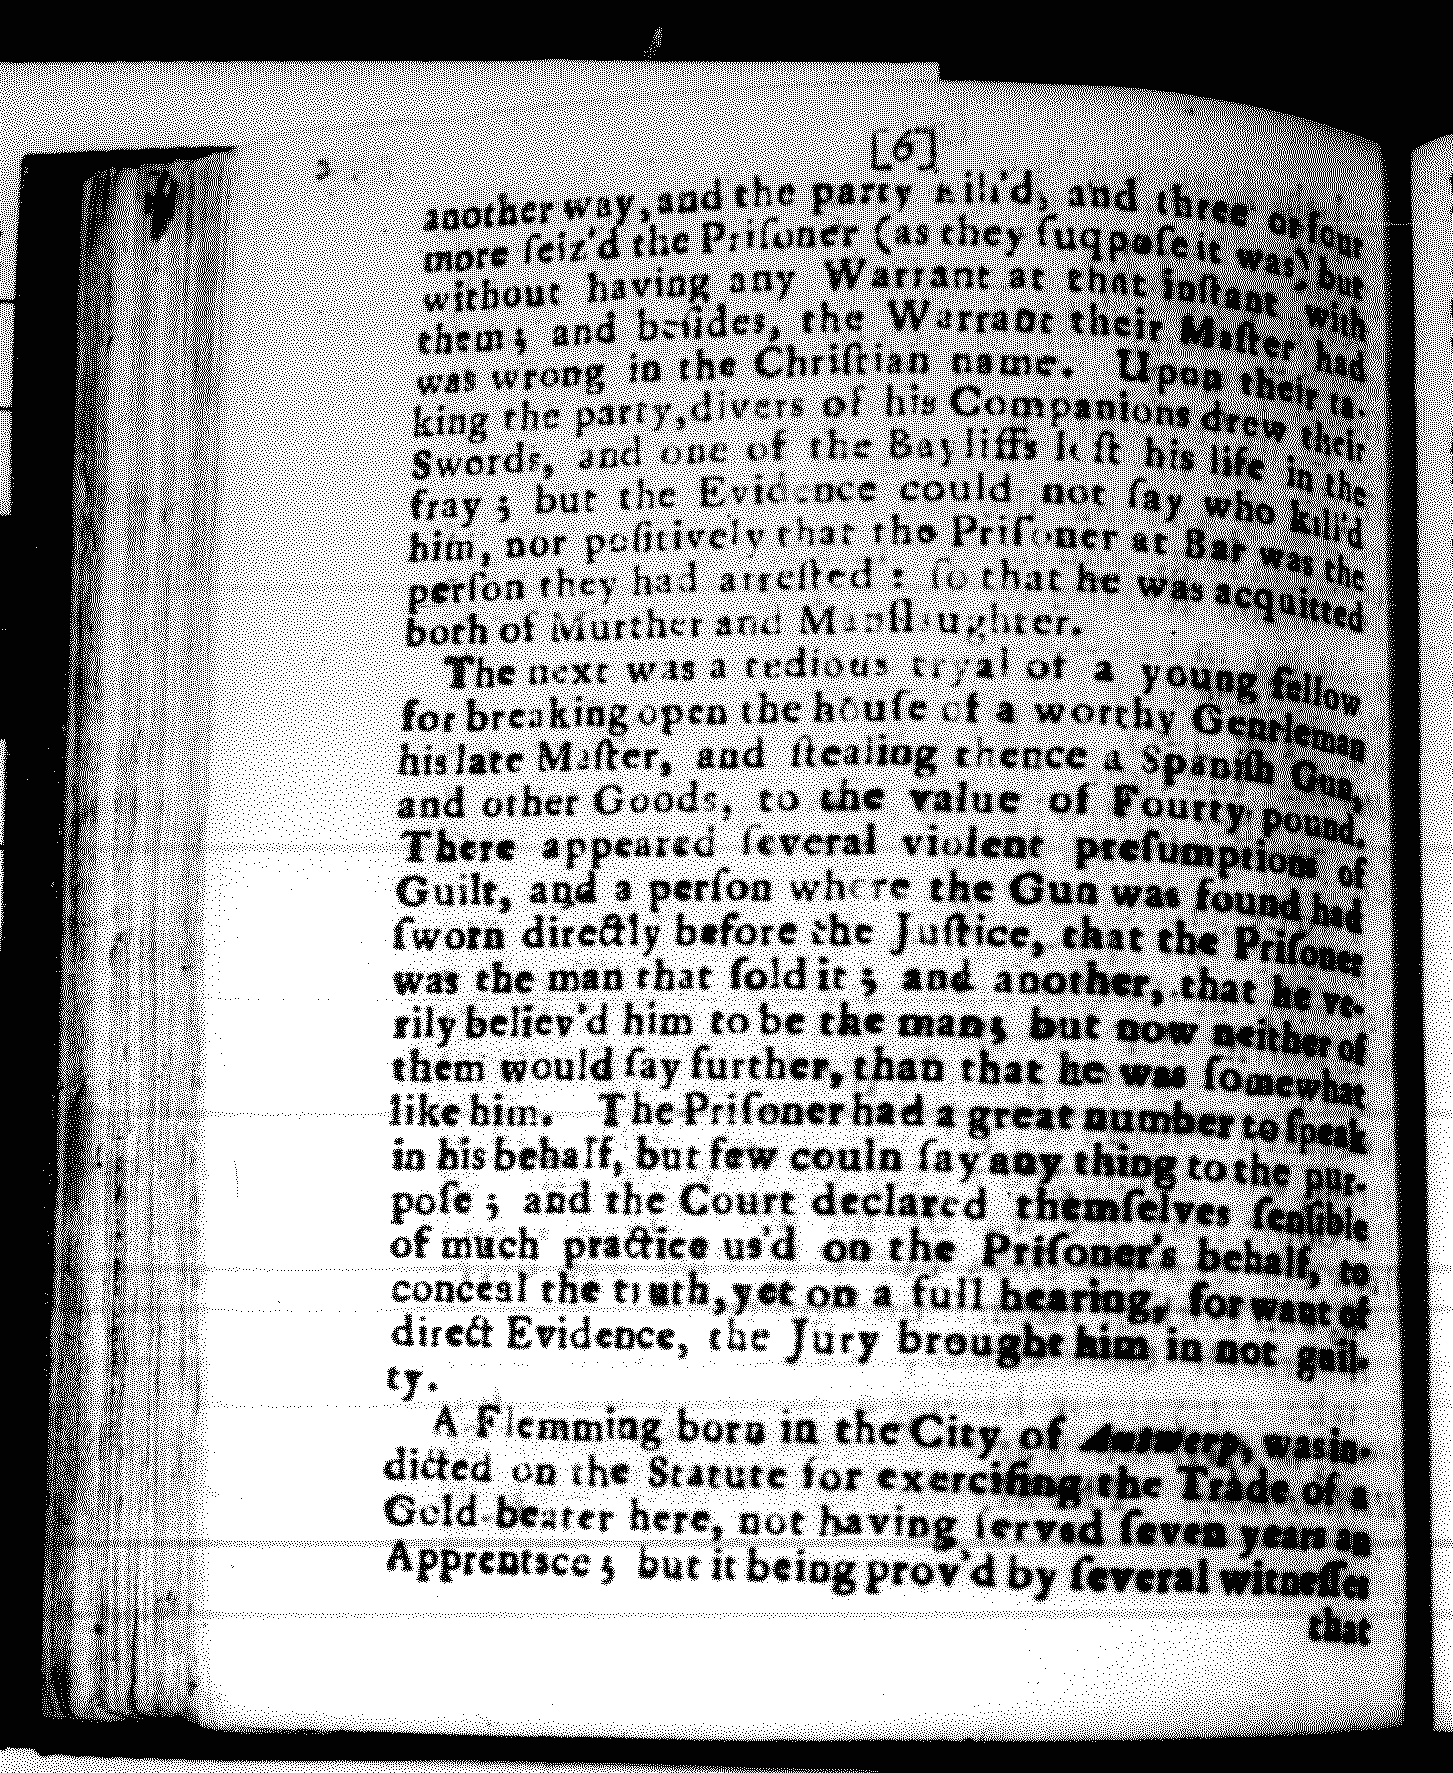 [6]
another way, and the party kill'd, and three or four
more ſeiz'd the Priſoner (as they ſuqpoſe it was) but
without having any Warrant at that inſtant with
them; and beſides, the Warrant their Maſter had
was wrong in the Chriſtian name. Upon their ta-
king the party, divers of his Companions drew their
Swords, and one of the Bayliffs loſt his life in the
fray; but the Evidence could not ſay who kill'd
him, nor poſitively that the Priſoner at Bar was the
perſon they had arreſted; ſo that he was acquitted
both of Murther and Manſlaughter.
The next was a tedious tryal of a young fellow
for breaking open the houſe of a worthy Gentleman
his late Maſter, and ſtealing thence a Spaniſh Gun,
and other Goods, to the value of Fourty pound.
There appeared ſeveral violent preſumptions of
Guilt, and a perſon where the Gun was found had
ſworn directly before the Juſtice, that the Priſoner
was the man that ſold it; and another, that he ve-
rily believ'd him to be the man; but now neither of
them would ſay further, than that he was ſomewhat
like him. The Priſoner had a great number to ſpeak
in his behalf, but few couln ſay any thing to the pur-
poſe; and the Court declared themſelves ſenſible
of much practice us'd on the Priſoner's behalf, to
conceal the truth, yet on a full hearing, for want of
direct Evidence, the Jury brought him in not guil-
ty.
A Flemming born in the City of Antwerp, was in-
dicted on the Statute for exerciſing the Trade of a
Gold-beater here, not having ſerved ſeven years an
Apprentsce; but it being prov'd by ſeveral witneſſes
that